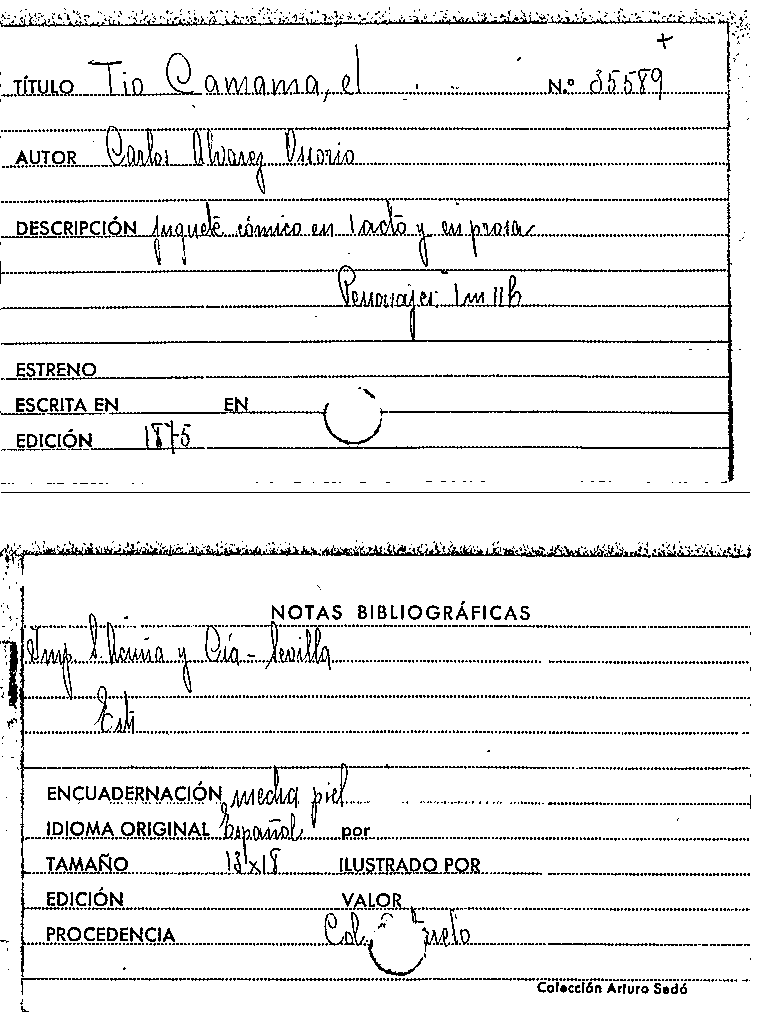 +
TÍTULO Tio Camama, el N.º 35589
AUTOR Carlos Alvarez Osorio
DESCRIPCIÓN juguete cómico en 1 acto y en prosa
Personajes: 1m 11h
ESTRENO
ESCRITA EN EN
EDICIÓN 1875
NOTAS BIBLIOGRÁFICAS
Imp. y Cía - Sevilla
ENCUADERNACIÓN media piel
IDIOMA ORIGINAL Español por
TAMAÑO 13x18 ILUSTRADO POR
EDICIÓN VALOR
PROCEDENCIA Col.
Colección Arturo Sedó